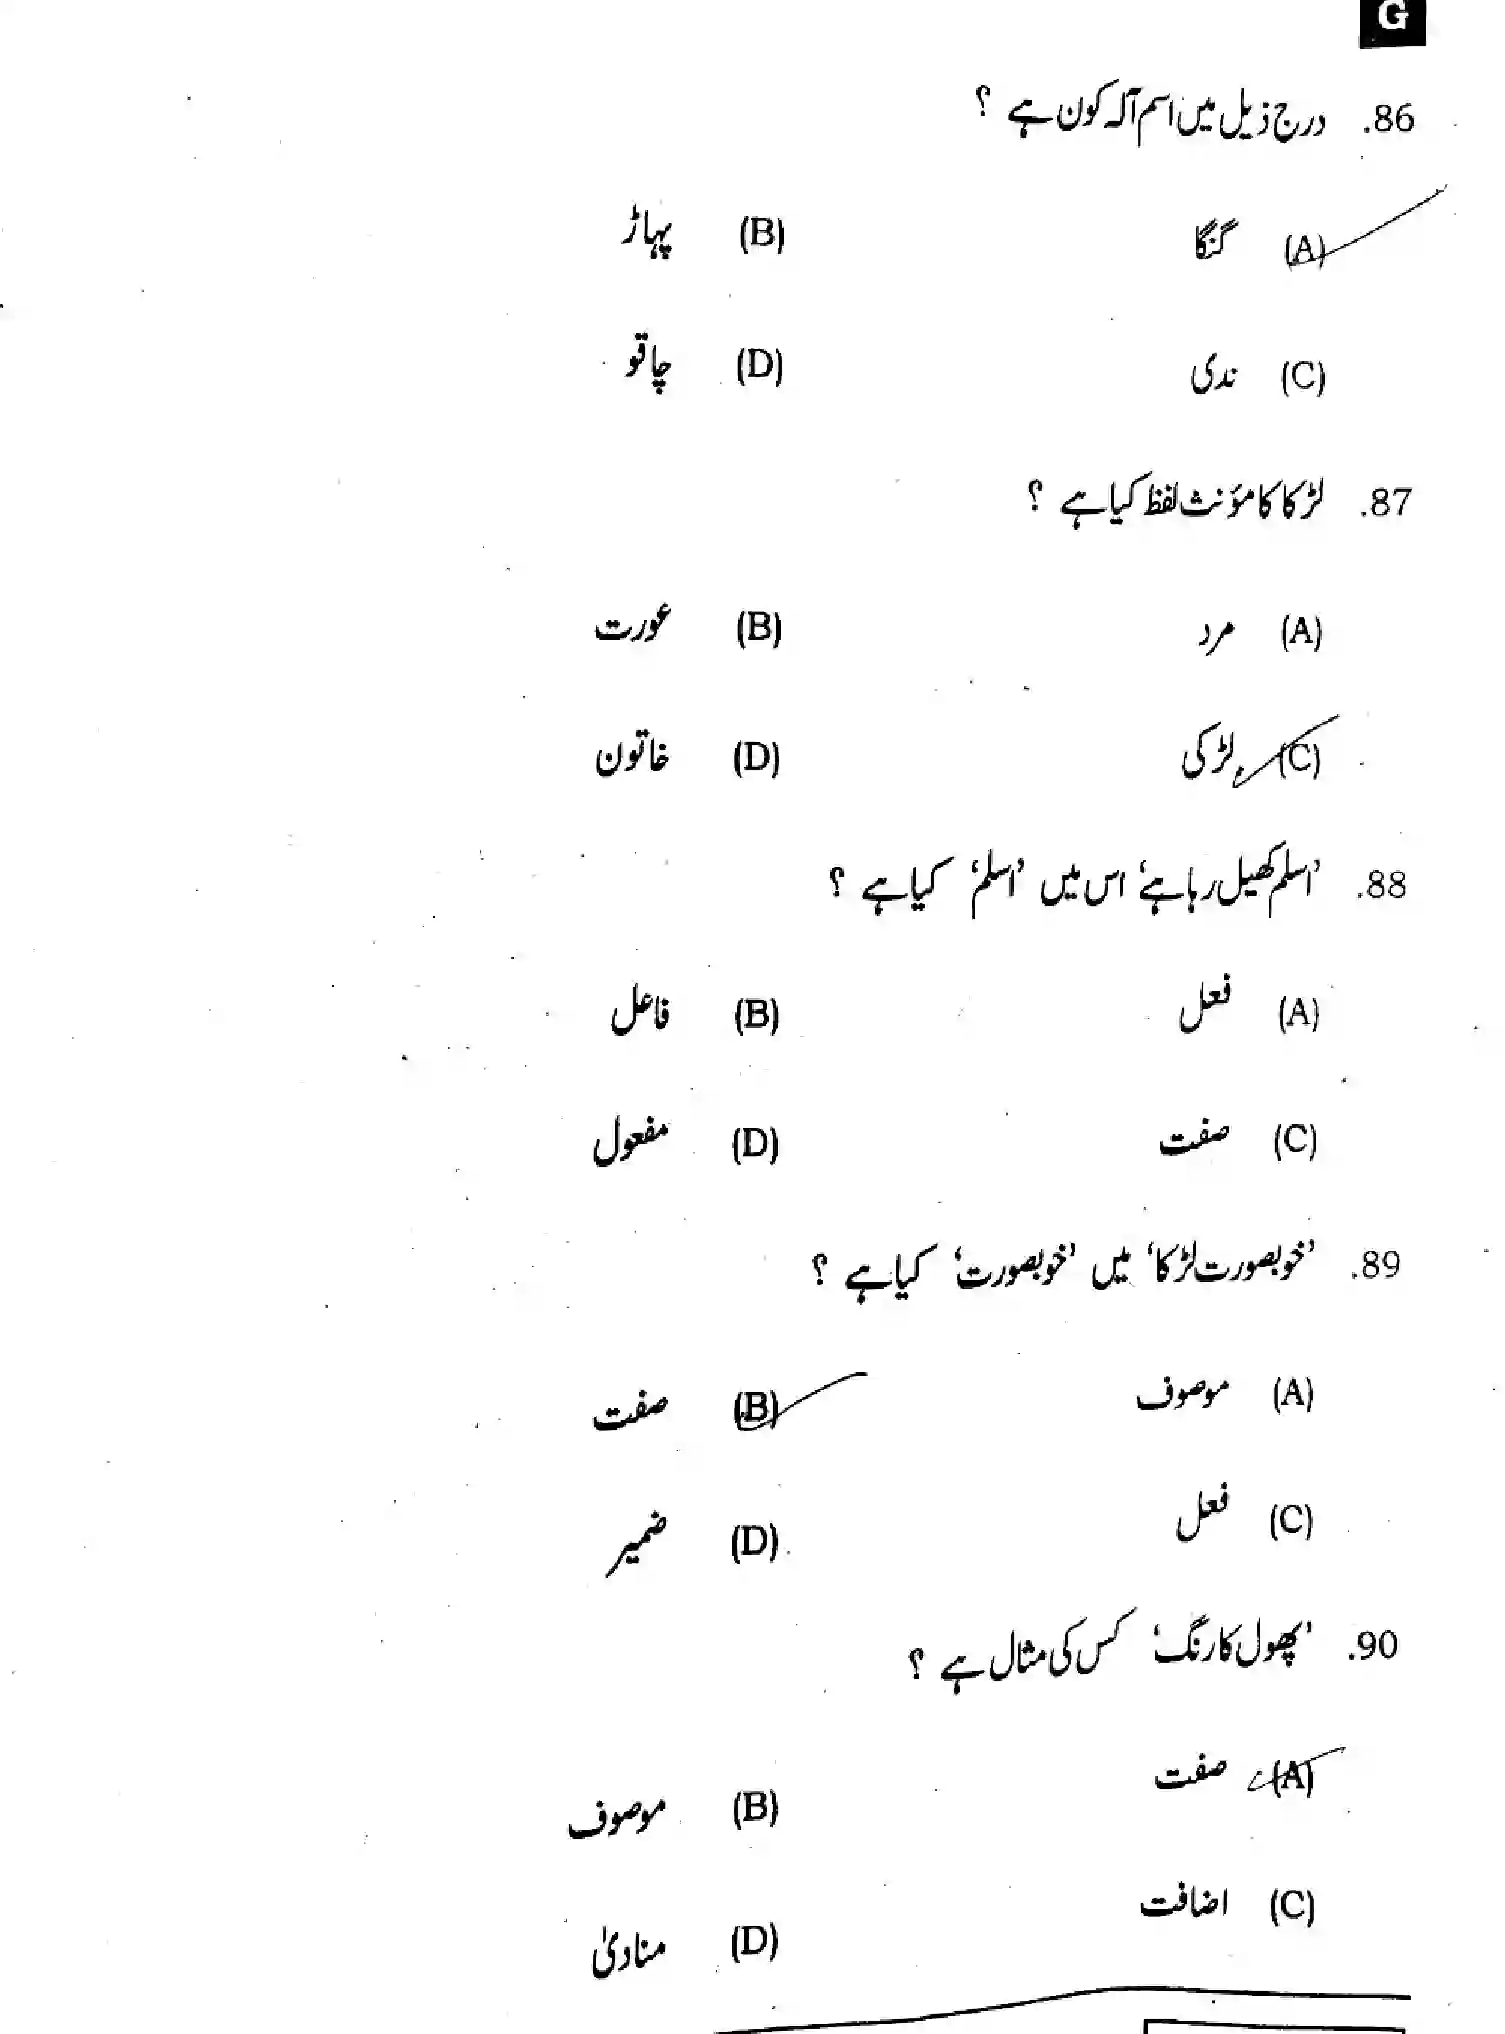 G
86. درج ذیل میں اسم آلہ کون ہے ؟
(A) گنگا (B) پہاڑ
(C) ندی (D) چاقو
87. لڑکا کا مؤنث لفظ کیا ہے ؟
(A) مرد (B) عورت
(C) لڑکی (D) خاتون
88. 'اسلم کھیل رہا ہے' اس میں 'اسلم' کیا ہے ؟
(A) فعل (B) فاعل
(C) صفت (D) مفعول
89. 'خوبصورت لڑکا' میں 'خوبصورت' کیا ہے ؟
(A) موصوف (B) صفت
(C) فعل (D) ضمیر
90. 'پھول کا رنگ' کس کی مثال ہے ؟
(A) صفت (B) موصوف
(C) اضافت (D) منادیٰ